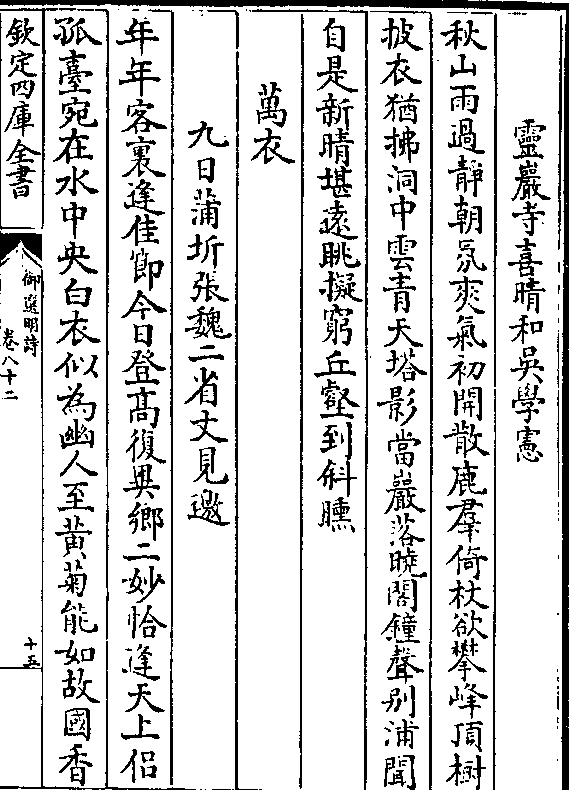 靈巖寺喜晴和吳學憲
秋山雨過靜朝氛爽氣初開散鹿羣倚杖欲攀峰頂樹
披衣猶拂洞中雲青天塔影當巖落曉閣鐘聲别浦聞
自是新晴堪遠眺擬窮丘壑到斜曛
萬衣
九日蒲圻張魏二省丈見邀
年年客裏逢佳節今日登髙復異鄉二妙恰逢天上侣
孤臺宛在水中央白衣似為幽人至黄菊能如故國香
欽定四庫全書
御選明詩
卷八十二
十五